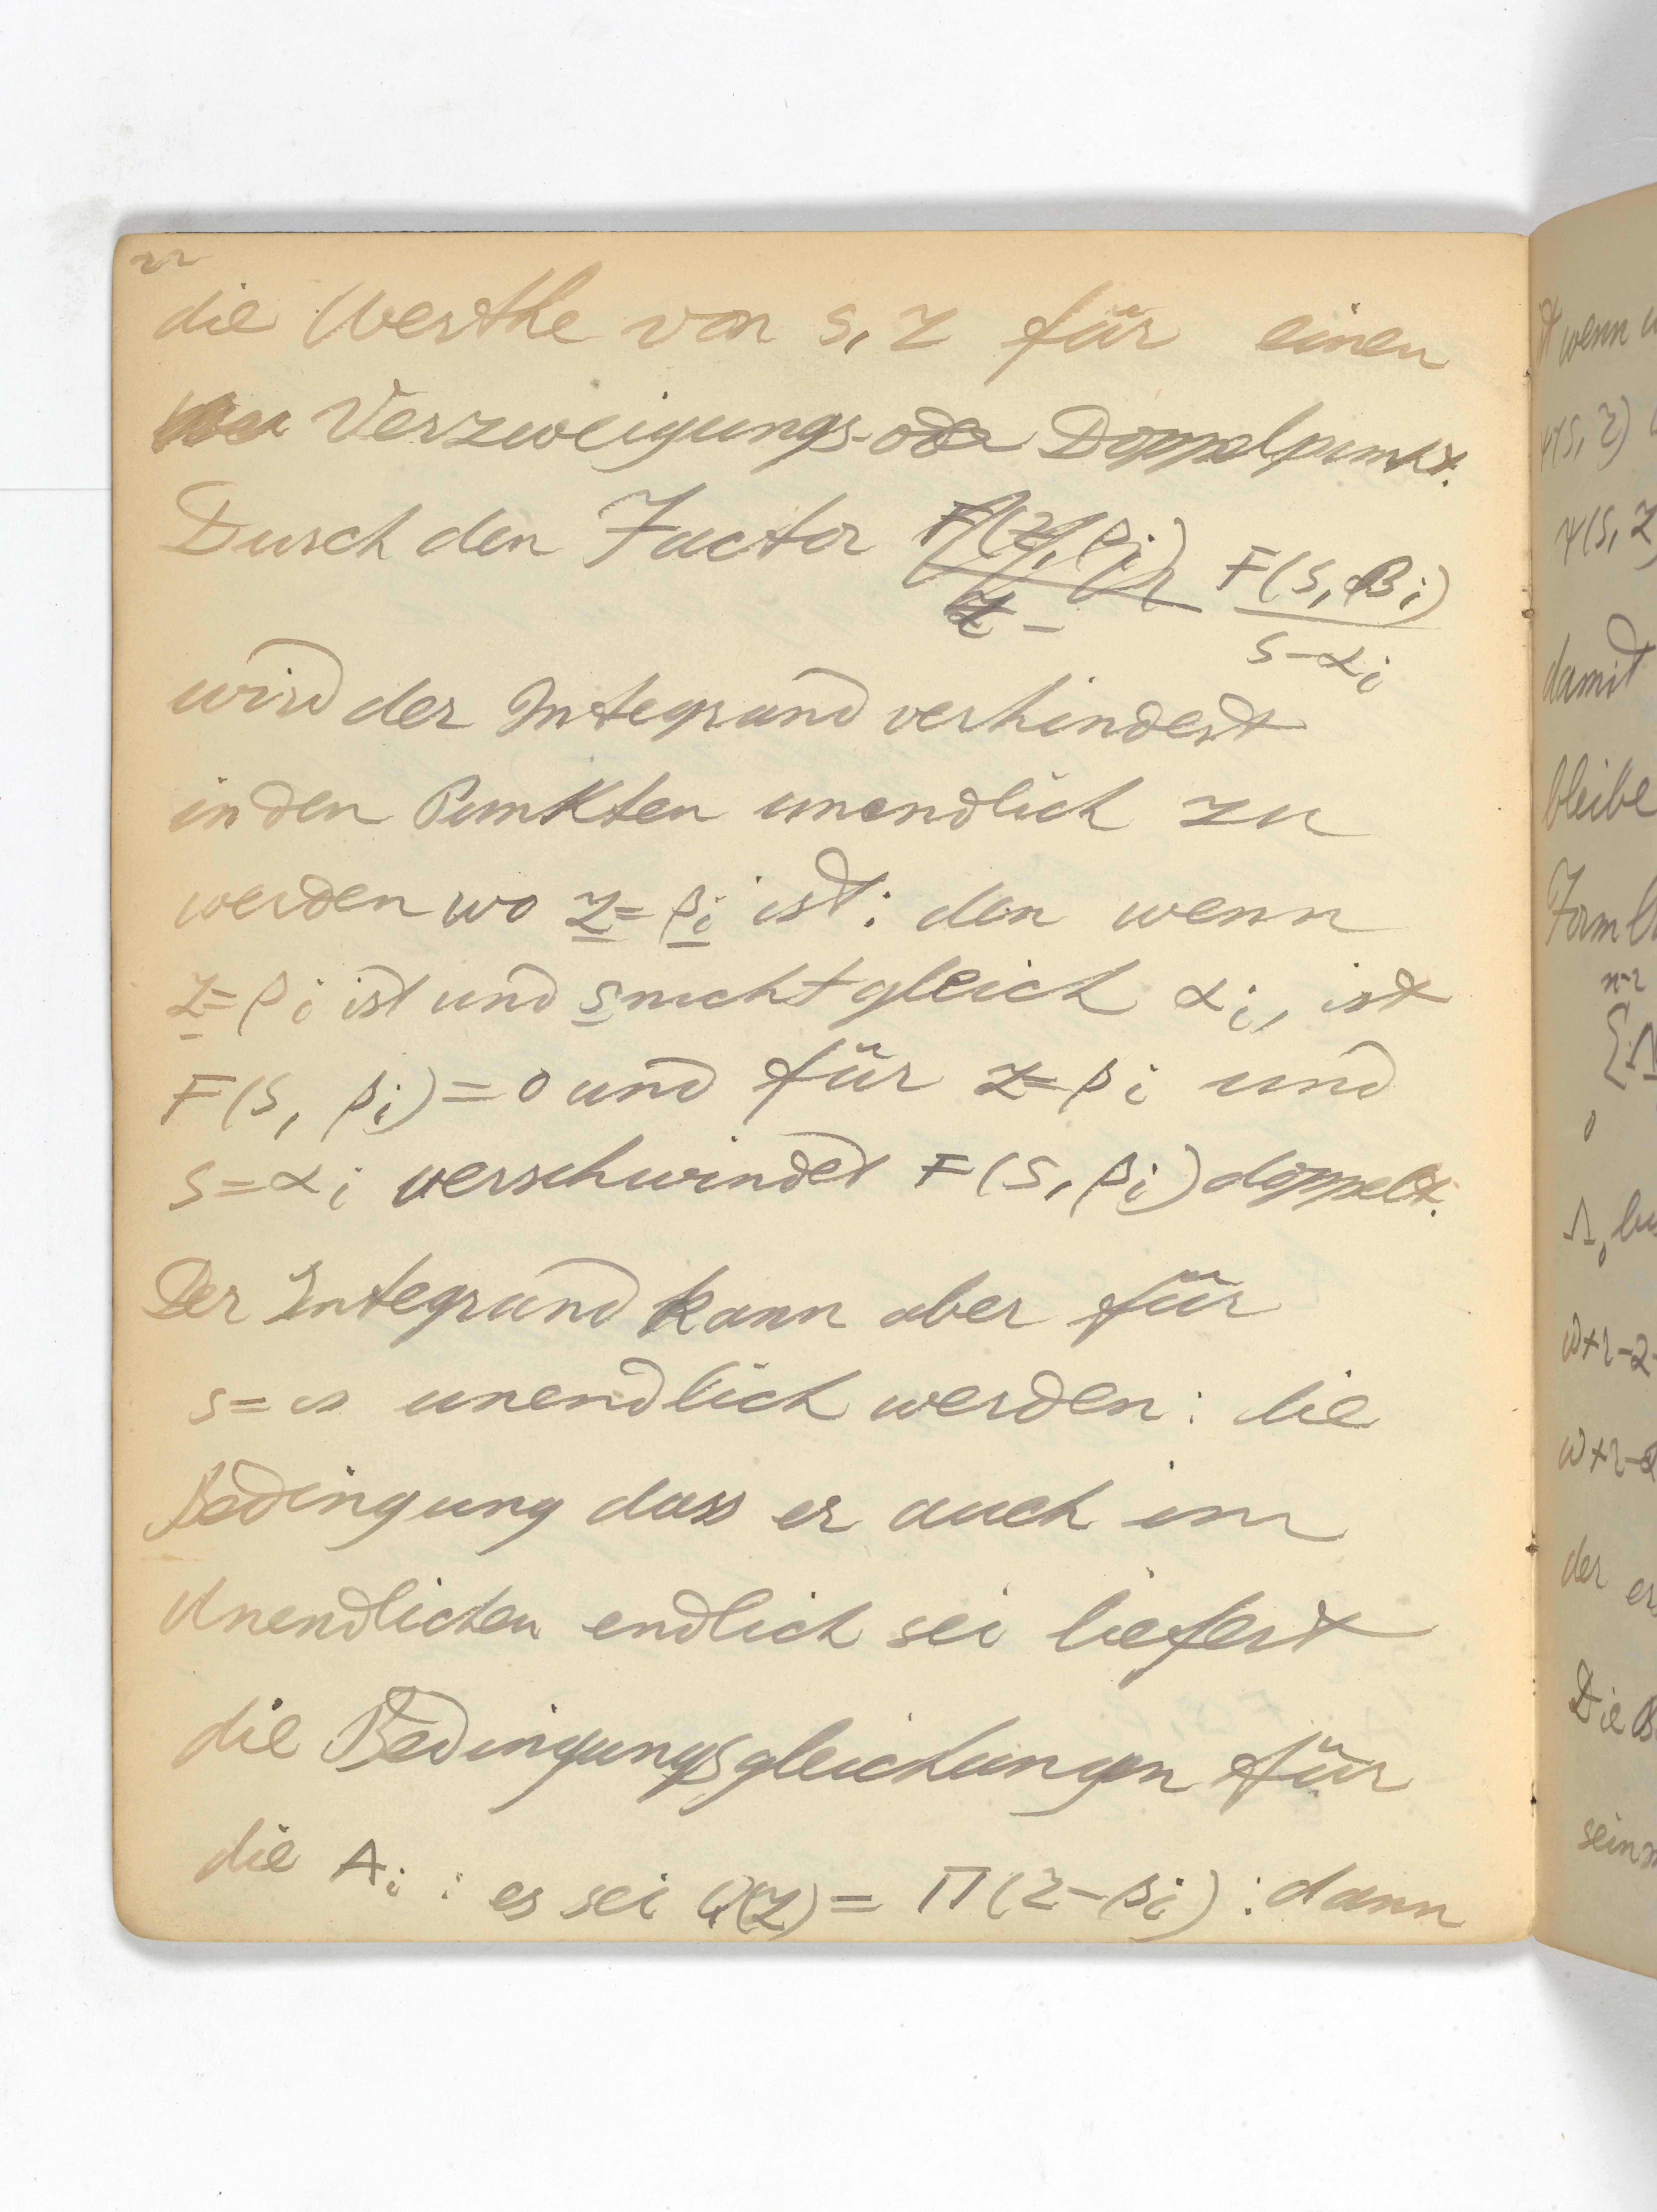 22
die Werthe von s, z für einen
Verzweigungs- oder Doppelpunkt.
Durch den Factor F(s, βi) / s-αi
wird der Integrand verhindert
in den Punkten unendlich zu
werden wo z=βi ist: den wenn
z=βi ist und s nicht gleich αi, ist
F(s, βi)=0 und für z=βi und
s=αi verschwindet F(s, βi) doppelt.
Der Integrand kann aber für
s=∞ unendlich werden: die
Bedingung dass er auch im
Unendlichen endlich sei liefert
die Bedingungsgleichungen für
die Ai : es sei φ(z) = Π(z-βi) : dann
wenn
ψ(s, z)
ψ(s, z
damit
bleibe
n-2
0
der
Die B